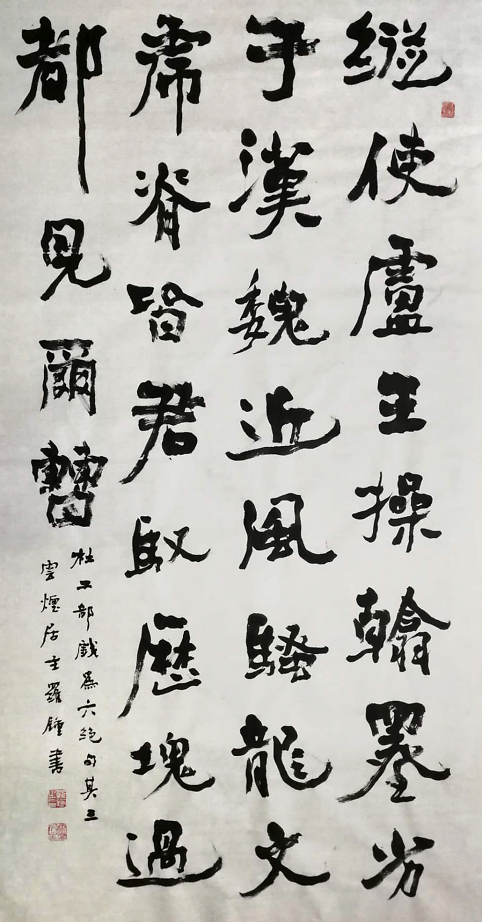 縱使盧王操翰墨劣
于漢魏近風騷龍文
虎脊皆君馭歷塊過
都見爾曹
杜工部戲為六絕句其三
雲煙居主羅鍾書